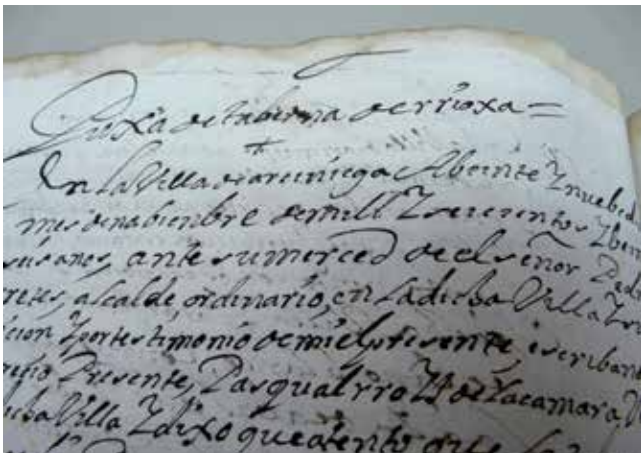 Puxa de taberna de rrioxa =
En la Villa de arciniega A beinte Y nuebe d
mes de nobienbre de mill Y seiscientos Y bein
seis anos, ante su merced de el señor Ped
alcalde, ordinario, en la dicha Villa Y su
cion Y por testimonio de mi el presente, escriban
Presente, Pasqual rroiz de la camara V
dicha Villa Y dixo que atento que